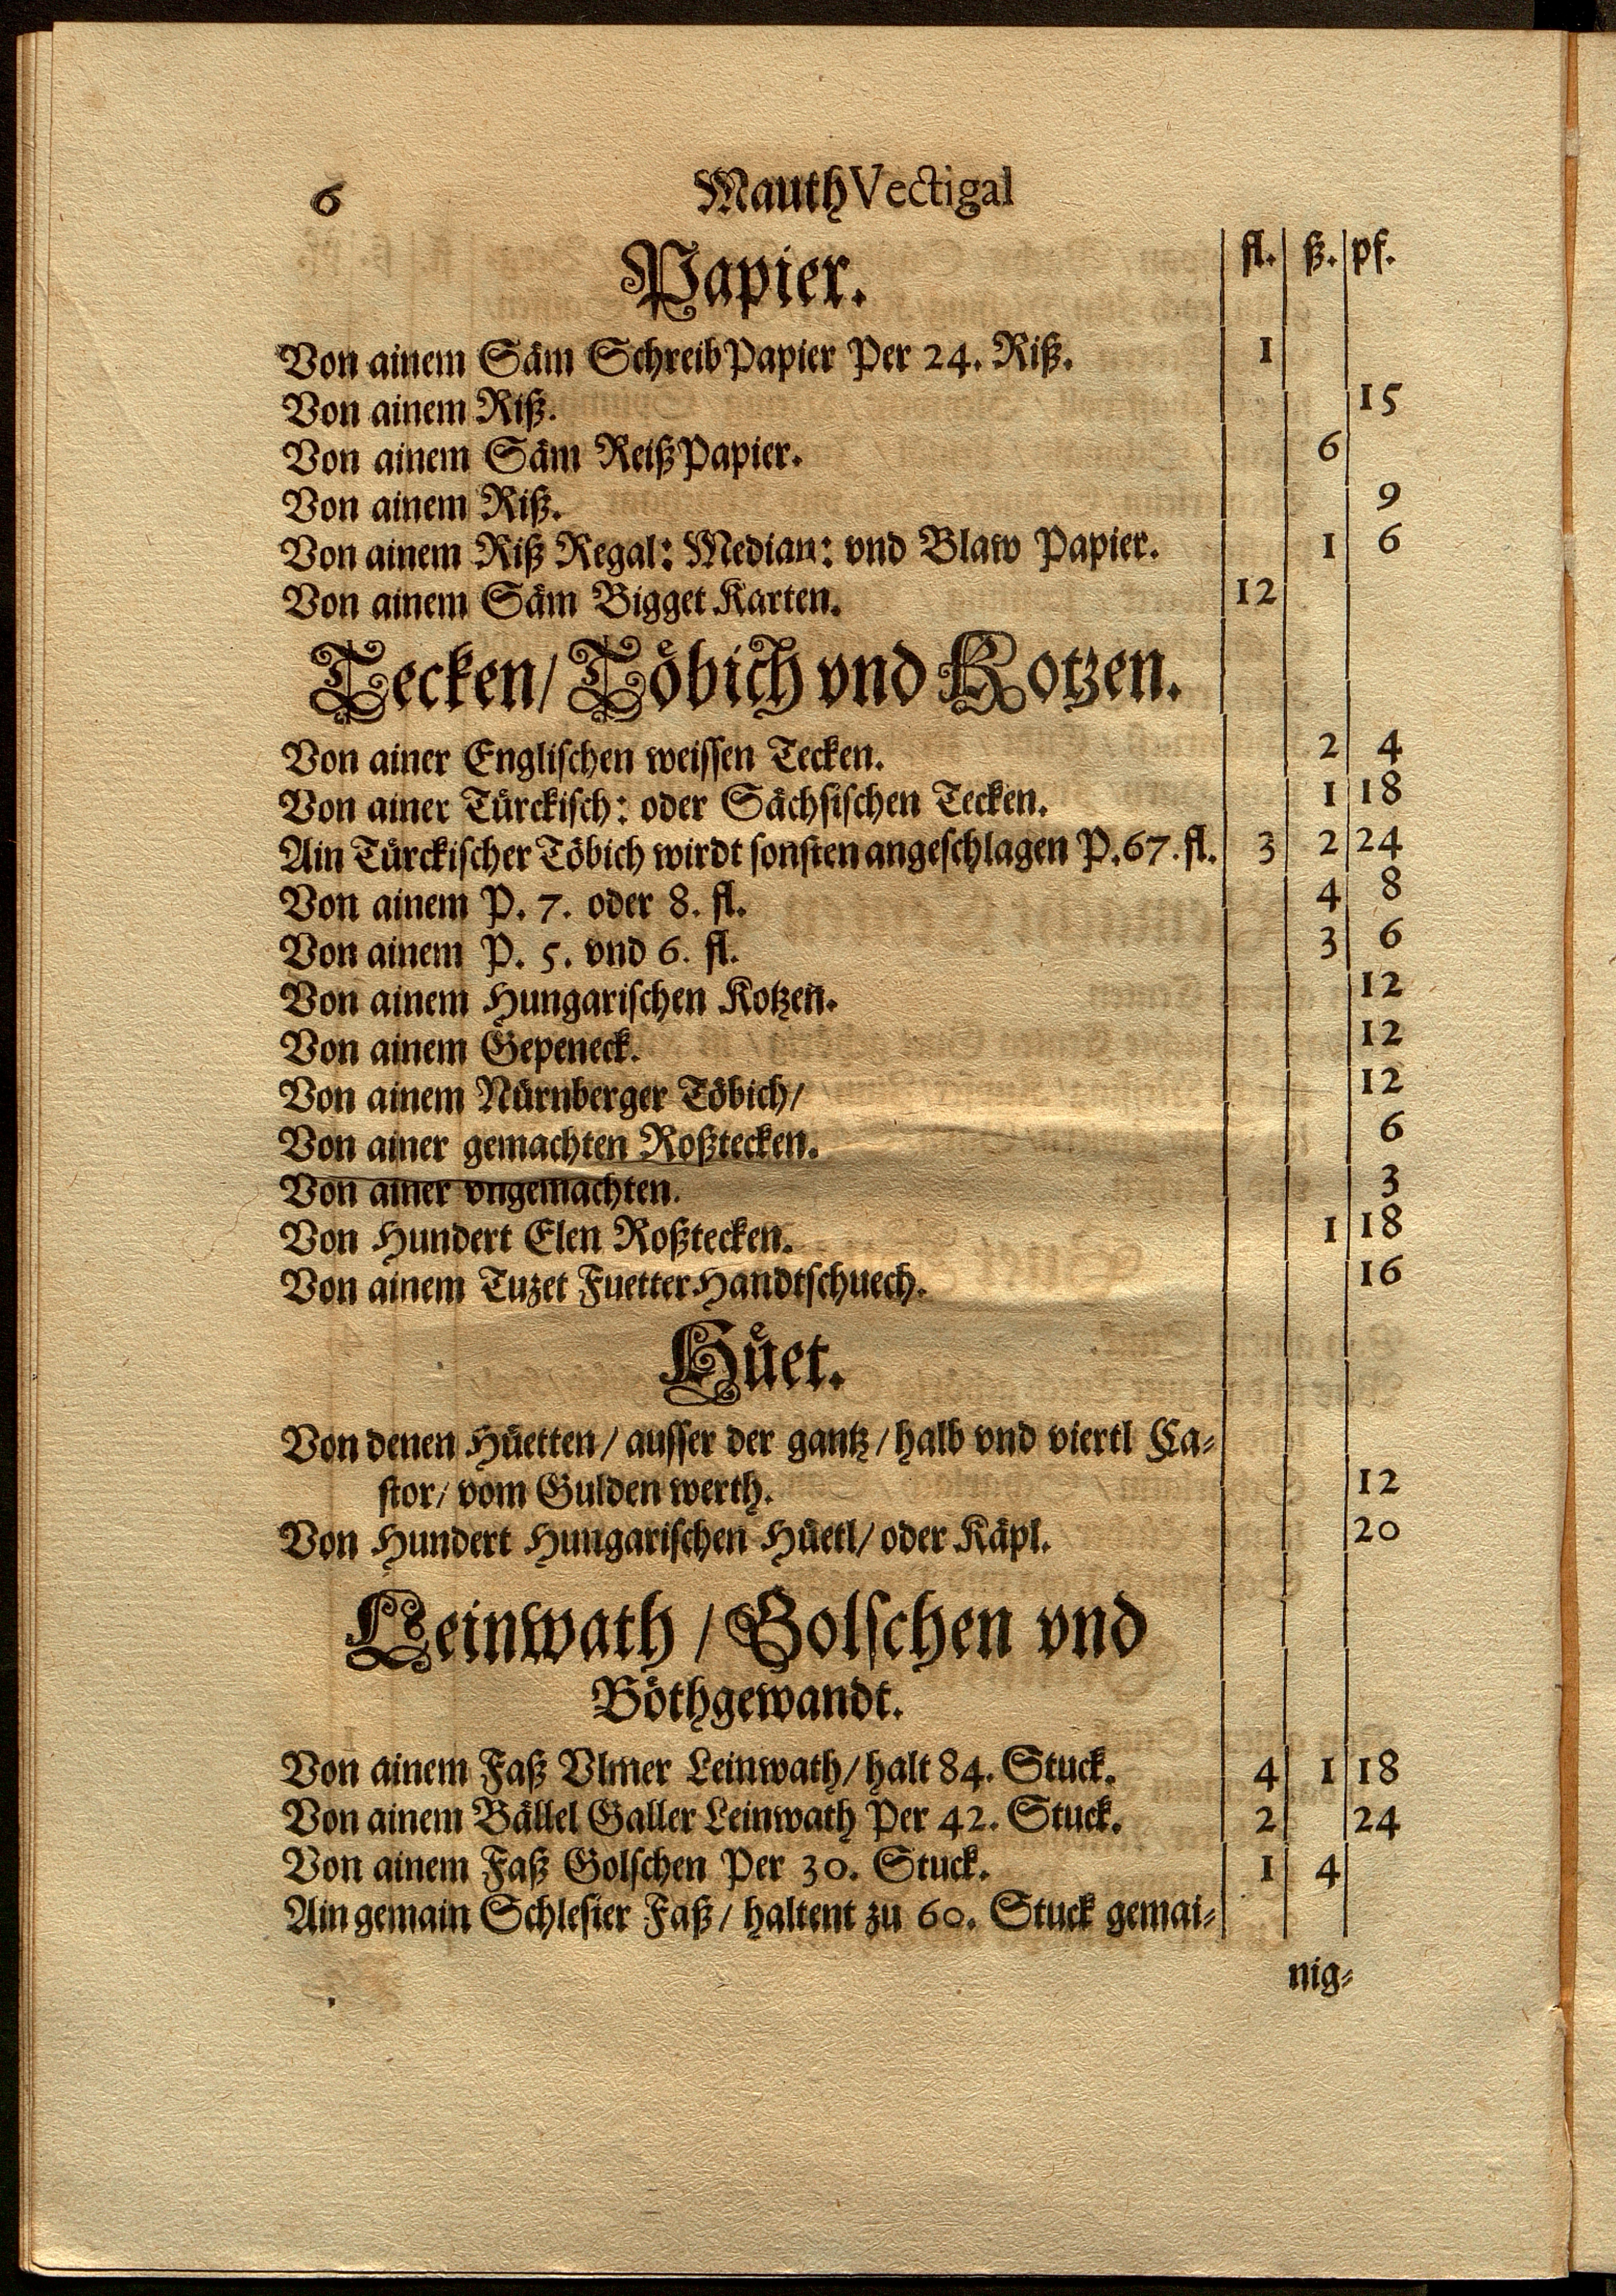 6 Mauth Vectigal
Papier. fl. ß. pf.
Von ainem Säm SchreibPapier Per 24. Riß. 1
Von ainem Riß. 15
Von ainem Säm ReißPapier. 6
Von ainem Riß. 9
Von ainem Riß Regal: Median: vnd Blaw Papier. 1 6
Von ainem Säm Bigget Karten. 12
Tecken/ Töbich vnd Kotzen.
Von ainer Englischen weissen Tecken. 2 4
Von ainer Türckisch: oder Sächsischen Tecken. 1 18
Ain Türckischer Töbich wirdt sonsten angeschlagen P. 67. fl. 3 2 24
Von ainem P. 7. oder 8. fl. 4 8
Von ainem P. 5. vnd 6. fl. 3 6
Von ainem Hungarischen Kotzen. 12
Von ainem Gepeneck. 12
Von ainem Nürnberger Töbich/ 12
Von ainer gemachten Roßtecken. 6
Von ainer vngemachten. 3
Von Hundert Elen Roßtecken. 1 18
Von ainem Tuzet Fuetter Handtschuech. 16
Hüet.
Von denen Hüetten/ ausser der gantz/ halb vnd viertl Ca⸗
stor/ vom Gulden werth. 12
Von Hundert Hungarischen Hüetl/ oder Käpl. 20
Leinwath/ Golschen vnd
Böthgewandt.
Von ainem Faß Vlmer Leinwath/ halt 84. Stuck. 4 1 18
Von ainem Bällel Galler Leinwath Per 42. Stuck. 2 24
Von ainem Faß Golschen Per 30. Stuck. 1 4
Ain gemain Schlesier Faß/ haltent zu 60. Stuck gemai⸗
nig⸗